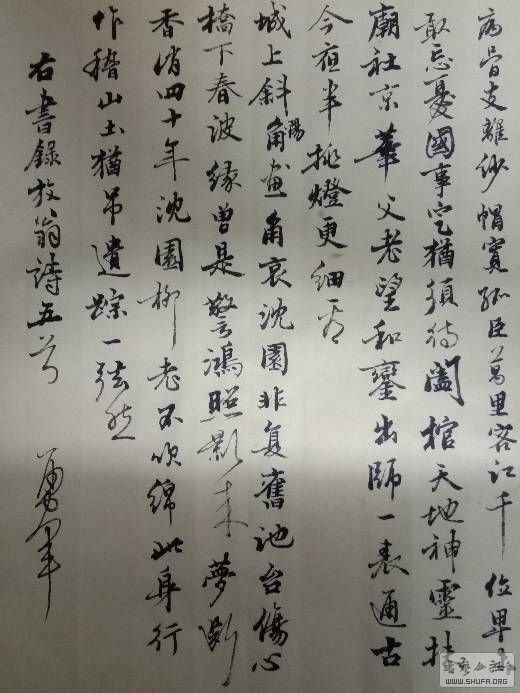 病骨支離紗帽寬孤臣萬里客江干位卑未
敢忘憂國事定猶須待闔棺天地神靈扶
廟社京華父老望和鑾出師一表通古
今夜半挑燈更細看
城上斜角陽畫角哀沈園非复舊池台傷心
橋下春波綠曾是驚鴻照影来夢斷
香消四十年沈園柳老不吹綿此身行
作稽山土猶吊遺踪一泫然
右書錄放翁詩五首
WWW.SHUFA.ORG